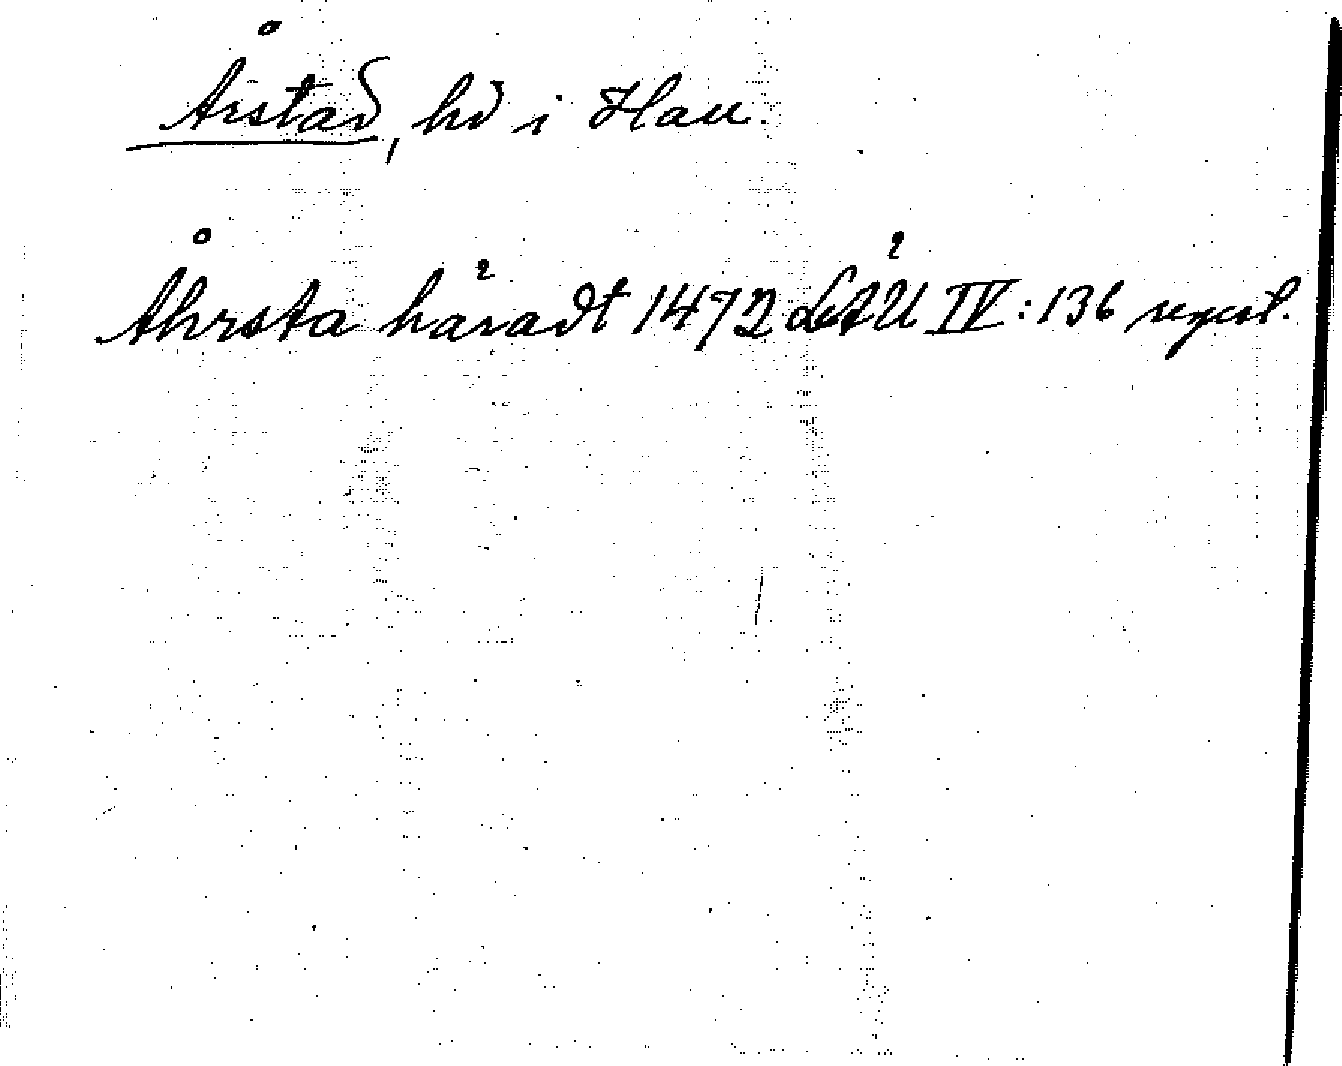 Årstad, hd i Hall.
Åhrsta häradt 1472 LÄU IV:136 regest.